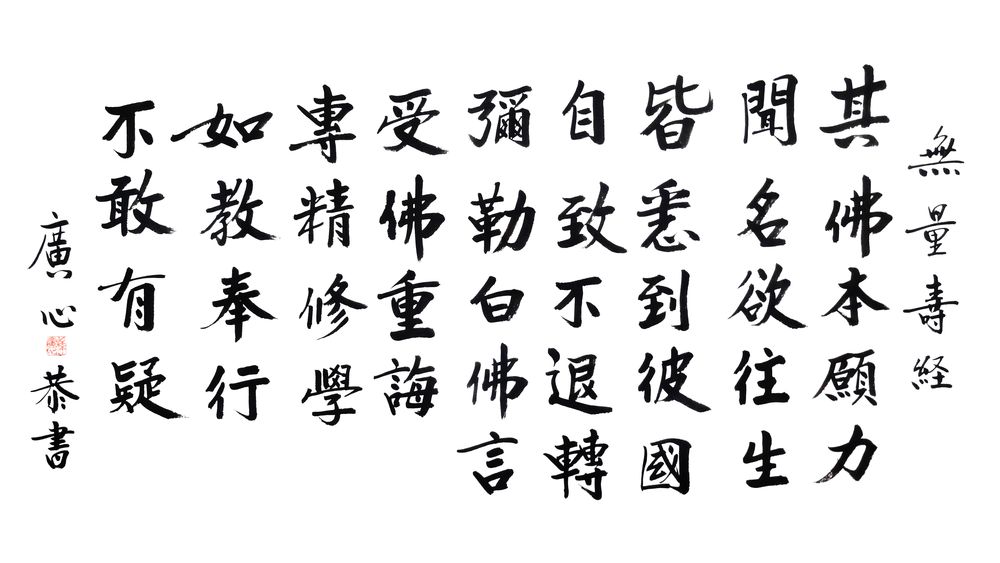 無量壽経
其佛本願力
聞名欲往生
皆悉到彼國
自致不退轉
彌勒白佛言
受佛重誨
專精修學
如教奉行
不敢有疑
廣心恭書